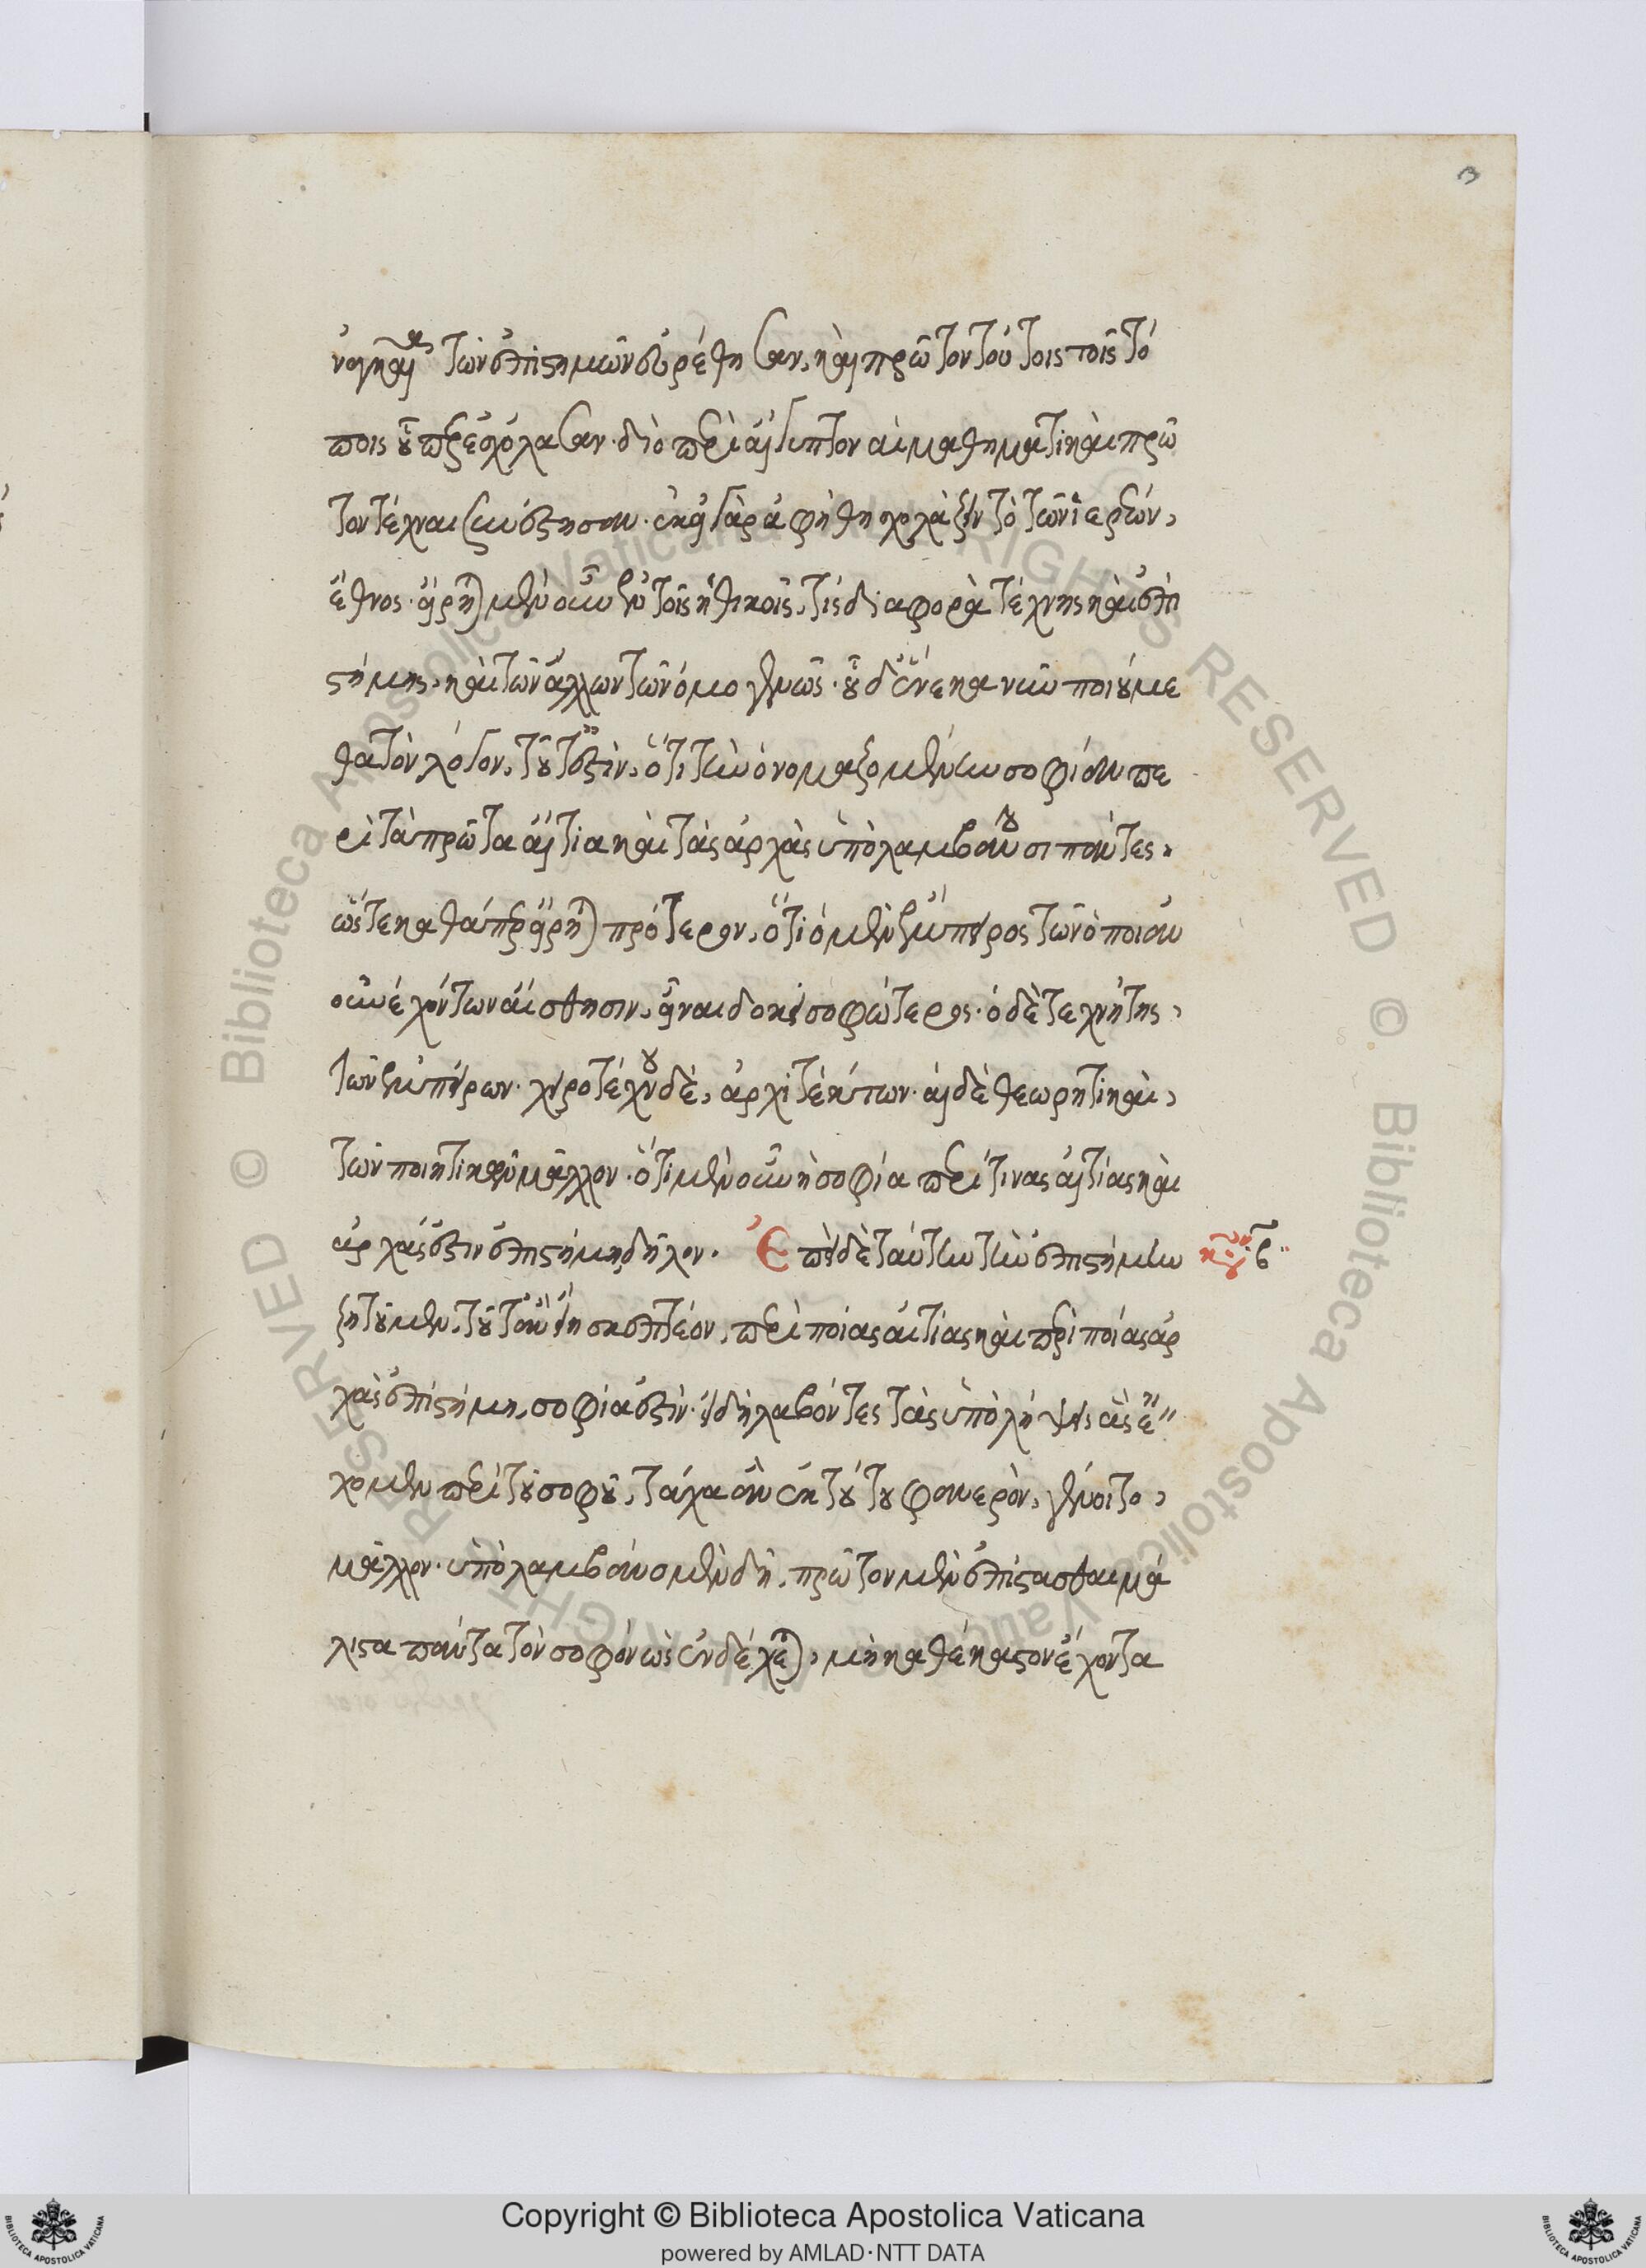 ναγκαῖα τῶν ἐπιστημῶν εὑρέθησαν, καὶ πρῶτον τούτοις τοῖς τό
ποις οὗπερ ἐσχόλασαν· διὸ περὶ αἴγυπτον αἱ μαθηματικαὶ πρῶ
τον τέχναι συνέστησαν· ἐκεῖ γὰρ ἀφείθη σχολάζειν τὸ τῶν ἱερέων,
ἔθνος· εἴρηται μὲν οὖν ἐν τοῖς ἠθικοῖς, τίς διαφορὰ τέχνης καὶ ἐπι
στήμης, καὶ τῶν ἄλλων τῶν ὁμογενῶν· οὗ δ' ἕνεκα νῦν ποιούμε
θα τὸν λόγον, τοῦτ' ἐστὶν, ὅτι τὴν ὀνομαζομένην σοφίαν πε
ρὶ τὰ πρῶτα αἴτια καὶ τὰς ἀρχὰς ὑπολαμβάνουσι πάντες.
ὥστε καθάπερ εἴρηται πρότερον, ὅτι ὁ μὲν ἔμπειρος τῶν ὁποιαν
οῦν ἐχόντων αἴσθησιν, εἶναι δοκεῖ σοφώτερος· ὁ δὲ τεχνίτης,
τῶν ἐμπείρων· χειροτέχνου δὲ, ἀρχιτέκτων· αἱ δὲ θεωρητικαὶ,
τῶν ποιητικῶν μᾶλλον· ὅτι μὲν οὖν ἡ σοφία περί τινας αἰτίας καὶ
ἀρχάς ἐστιν ἐπιστήμη, δῆλον. Ἐπεὶ δὲ ταύτην τὴν ἐπιστήμην
κεφ. β
ζητοῦμεν, τοῦτ' ἂν εἴη σκεπτέον, περὶ ποίας αἰτίας καὶ περὶ ποίας ἀρ
χὰς ἐπιστήμη, σοφία ἐστίν· εἰ δὴ λάβοιτες τὰς ὑπολήψεις ἃς ἔ
χομεν περὶ τοῦ σοφοῦ, τάχα ἂν ἐκ τούτου φανερὸν, γένοιτο,
μᾶλλον· ὑπολαμβάνομεν δὴ, πρῶτον μὲν ἐπίστασθαι μά
λιστα πάντα τὸν σοφὸν ὡς ἐνδέχεται, μὴ καθέκαστον ἔχοντα
Copyright © Biblioteca Apostolica Vaticana
powered by AMLAD·NTT DATA